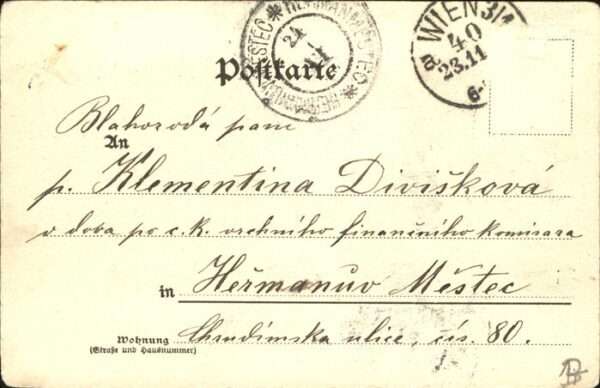 HERMANMĚSTEC
24
WIEN 3/1
40
23.11
Postkarte
Blahorodá paní
An
p. Klementina Divišková
vdova po c. k. vrchního finančního komisara
in Heřmanův Městec
Wohnung
(Straße und Hausnummer)
Chrudimska ulice, čís. 80.